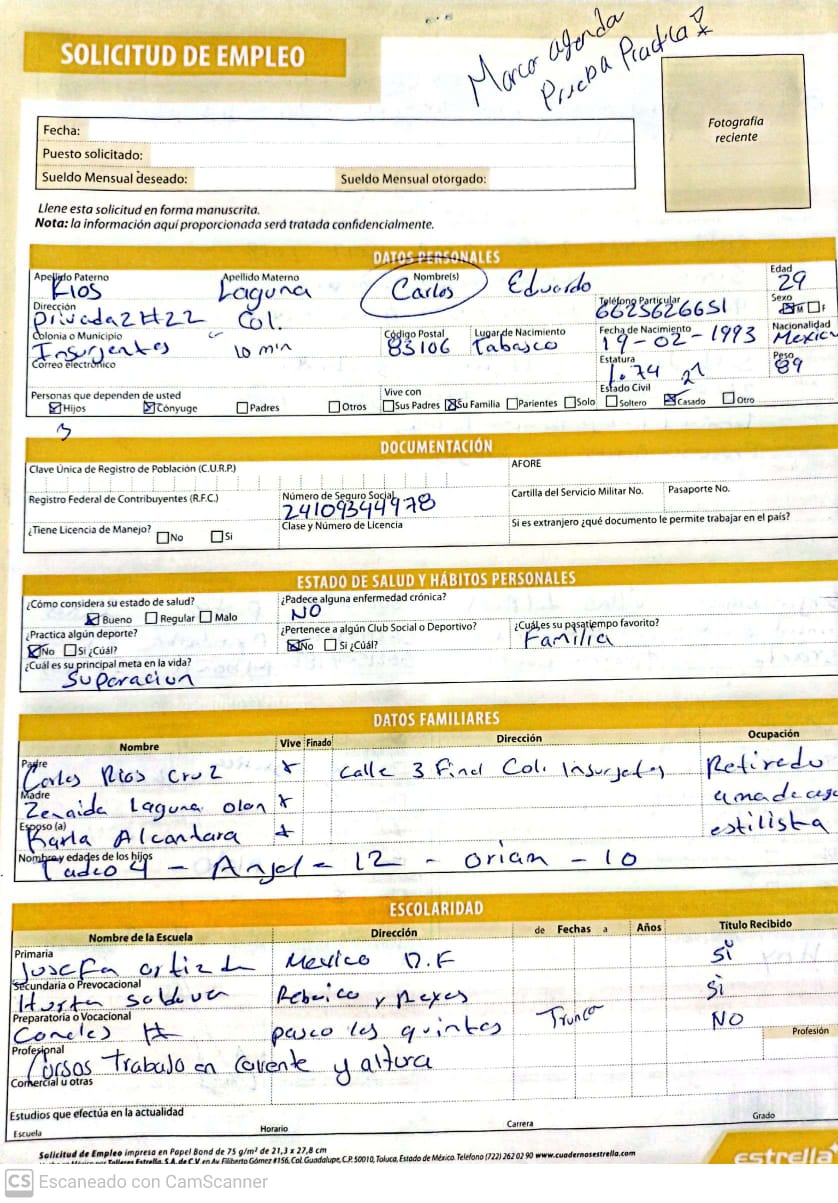 Marco agenda
Prueba Practica
SOLICITUD DE EMPLEO
Fotografía
reciente
Fecha:
Puesto solicitado:
Sueldo Mensual deseado: Sueldo Mensual otorgado:
Llene esta solicitud en forma manuscrita.
Nota: la información aquí proporcionada será tratada confidencialmente.
DATOS PERSONALES
Apellido Paterno Apellido Materno Nombre(s) Edad
Rios Laguna Carlos Eduardo 29
Dirección Teléfono Particular Sexo
Privada 2 #22 Col. 6623626651 M F
Colonia o Municipio Código Postal Lugar de Nacimiento Fecha de Nacimiento Nacionalidad
Insurgentes 10 min 83106 Tabasco 19-02-1993 Mexico
Correo electrónico Estatura Peso
1.74 89
21
Personas que dependen de usted Vive con Estado Civil
Hijos Cónyuge Padres Otros Sus Padres Su Familia Parientes Solo Soltero Casado Otro
3
DOCUMENTACIÓN
Clave Única de Registro de Población (C.U.R.P.) AFORE
Registro Federal de Contribuyentes (R.F.C.) Número de Seguro Social Cartilla del Servicio Militar No. Pasaporte No.
24109344978
¿Tiene Licencia de Manejo? No Si Clase y Número de Licencia Si es extranjero ¿qué documento le permite trabajar en el país?
ESTADO DE SALUD Y HÁBITOS PERSONALES
¿Cómo considera su estado de salud? ¿Padece alguna enfermedad crónica?
Bueno Regular Malo NO
¿Practica algún deporte? ¿Pertenece a algún Club Social o Deportivo? ¿Cuál es su pasatiempo favorito?
No Si ¿Cuál? No Si ¿Cuál? Familia
¿Cuál es su principal meta en la vida?
Superacion
DATOS FAMILIARES
Nombre Vive Finado Dirección Ocupación
Padre
Carlos Rios Cruz x Calle 3 Final Col. Insurjetes Retirado
Madre
Zenaida Laguna olan x ama de casa
Esposo (a)
Karla Alcantara x estilista
Nombre y edades de los hijos
Tadeo 4 - Anjel = 12 - orian - 10
ESCOLARIDAD
Nombre de la Escuela Dirección de Fechas a Años Título Recibido
Primaria
Josefa ortiz d Mexico D.F Si
Secundaria o Prevocacional
Reberico y Reyes Si
Preparatoria o Vocacional
paseo les quintas Trunca NO
Profesional Profesión
Cursos Trabajo en Caliente y altura
Comercial u otras
Estudios que efectúa en la actualidad
Escuela Horario Carrera Grado
Solicitud de Empleo impresa en Papel Bond de 75 g/m² de 21,3 x 27,8 cm
Talleres Estrella, S.A. de C.V. en Av. Filiberto Gómez #156, Col. Guadalupe, C.P. 50010, Toluca, Estado de México. Teléfono (722) 262 02 90 www.cuadernosestrella.com
estrella
CS Escaneado con CamScanner